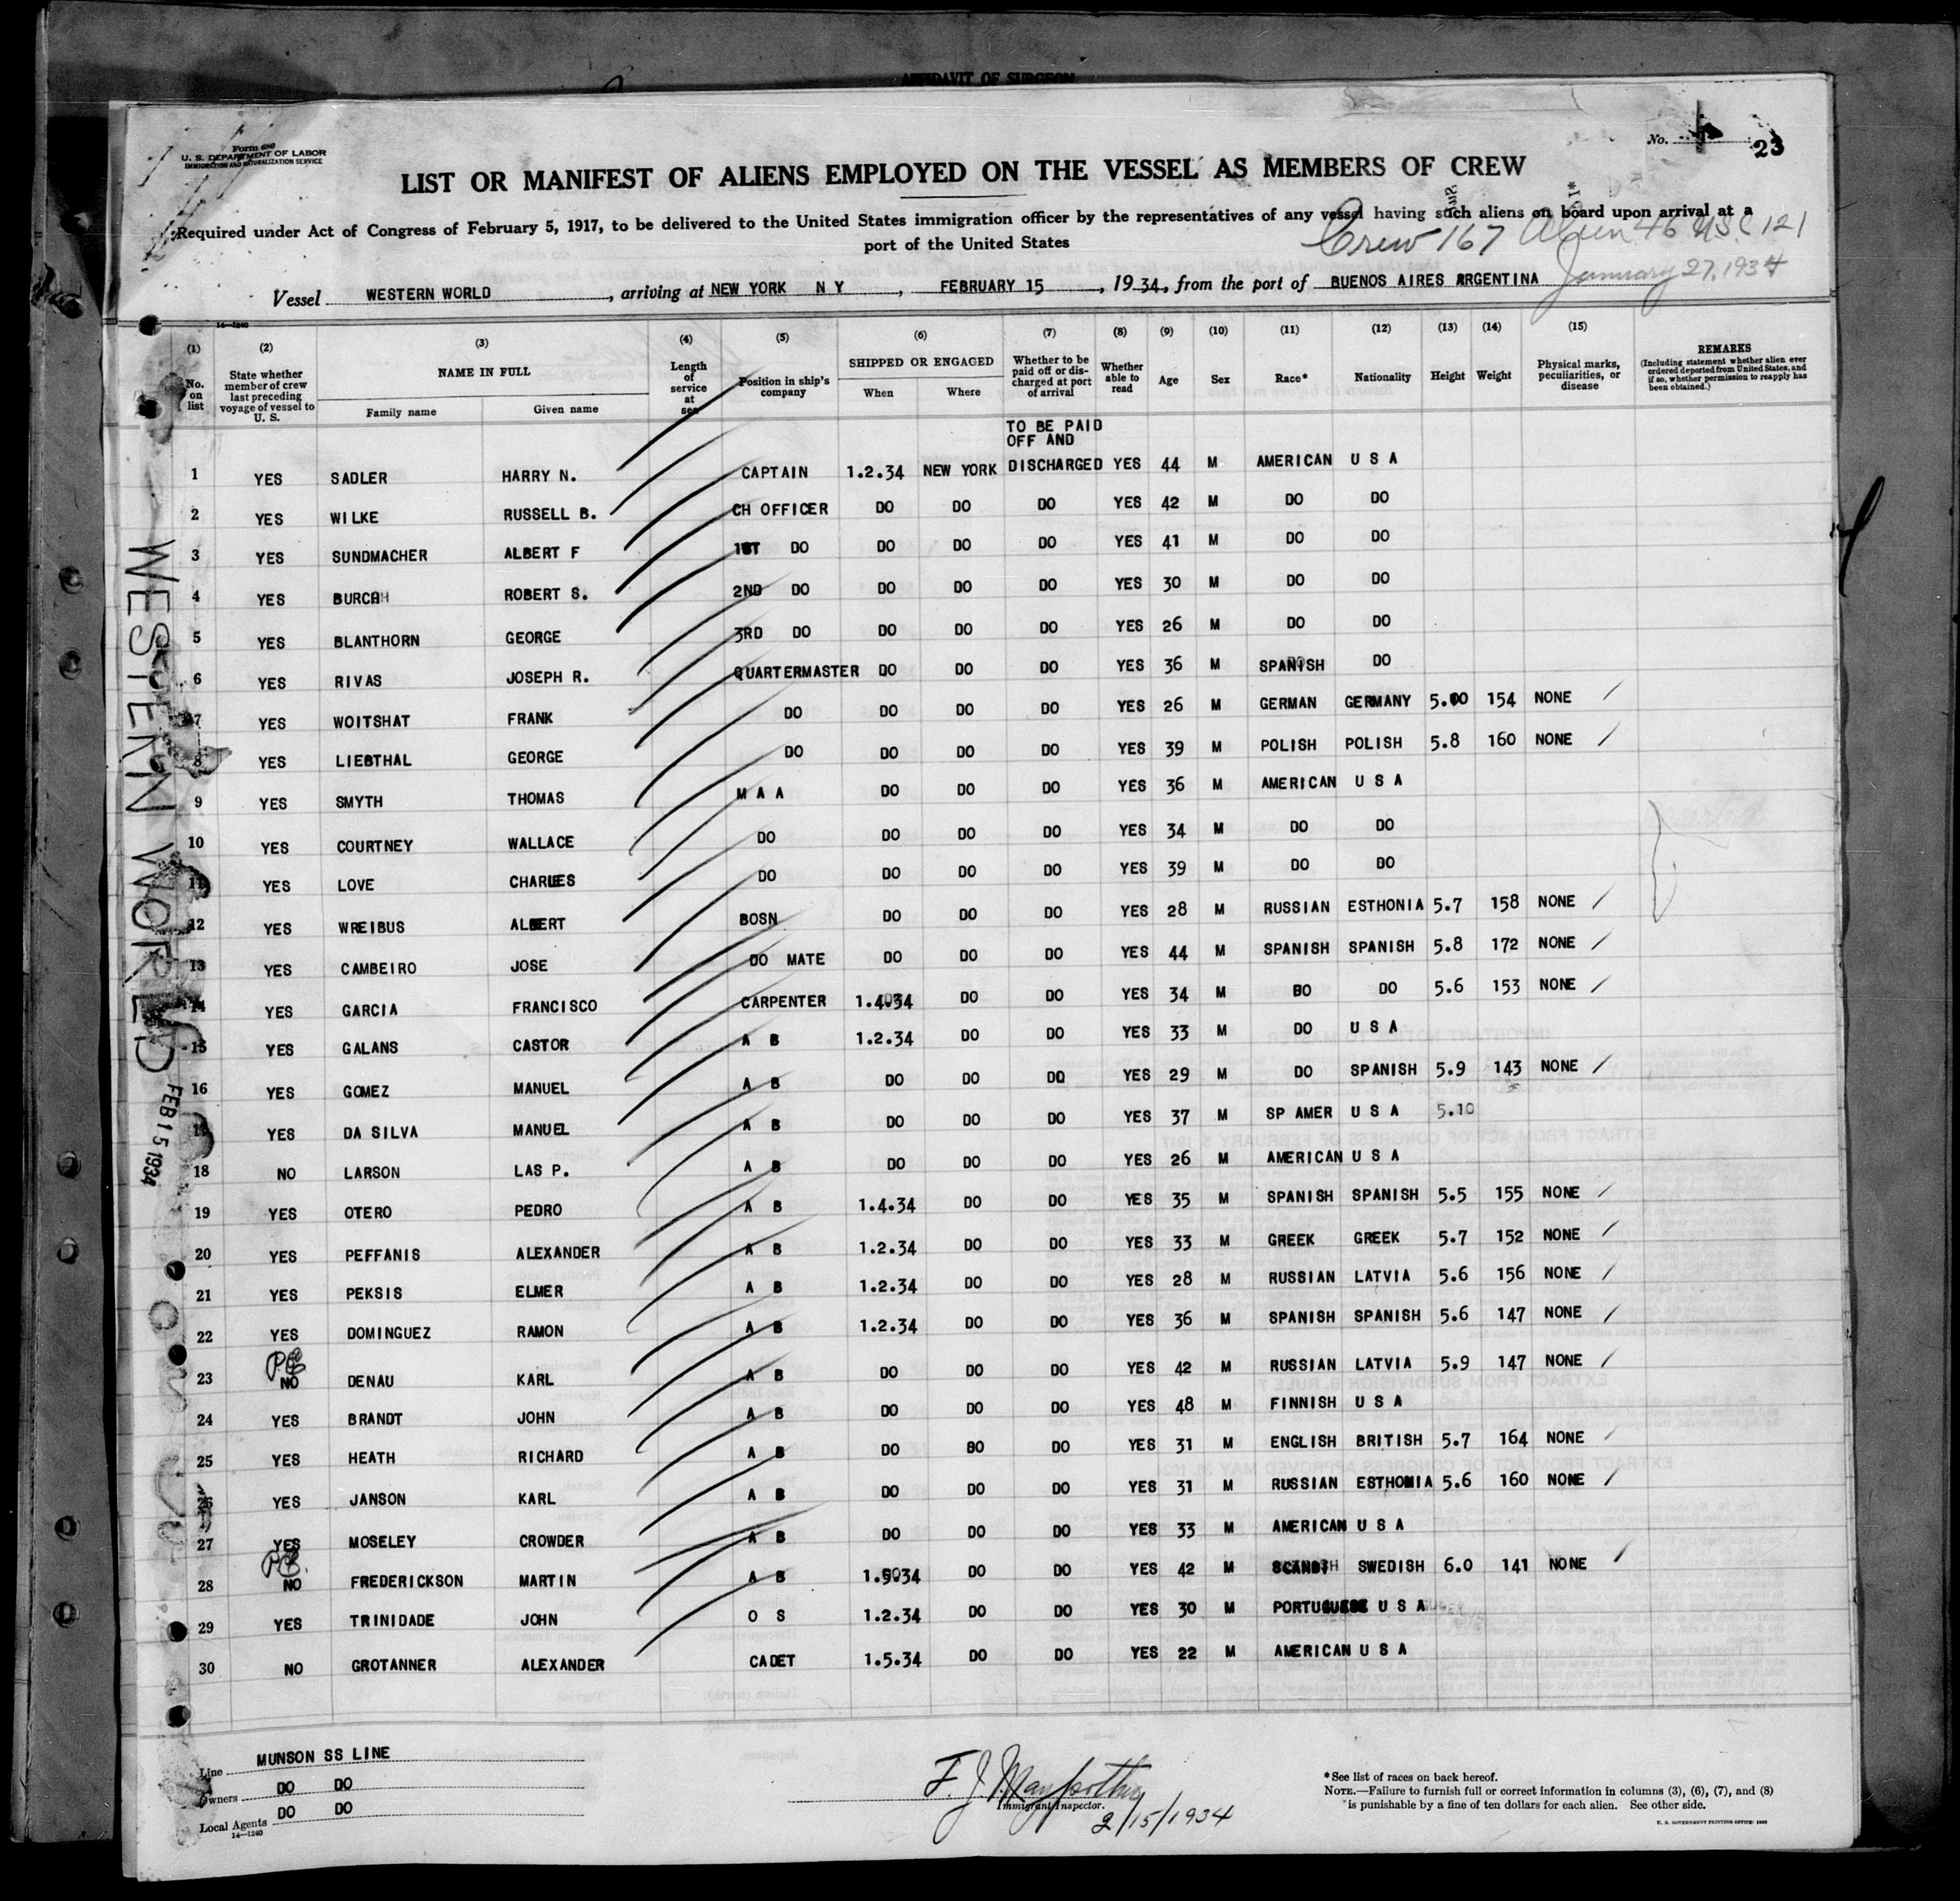 AFFIDAVIT OF SURGEON
Form 680
U. S. DEPARTMENT OF LABOR
IMMIGRATION AND NATURALIZATION SERVICE
No.
23
LIST OR MANIFEST OF ALIENS EMPLOYED ON THE VESSEL AS MEMBERS OF CREW
Required under Act of Congress of February 5, 1917, to be delivered to the United States immigration officer by the representatives of any vessel having such aliens on board upon arrival at a
port of the United States
Crew 167 Alien 46 USC 121
January 27, 1934
Vessel WESTERN WORLD, arriving at NEW YORK N Y, FEBRUARY 15, 1934, from the port of BUENOS AIRES ARGENTINA
14—1240
(1) (2) (3) (4) (5) (6) (7) (8) (9) (10) (11) (12) (13) (14) (15)
No. on list
State whether member of crew last preceding voyage of vessel to U. S.
NAME IN FULL
Family name
Given name
Length of service at sea
Position in ship's company
SHIPPED OR ENGAGED
When
Where
Whether to be paid off or discharged at port of arrival
Whether able to read
Age
Sex
Race*
Nationality
Height
Weight
Physical marks, peculiarities, or disease
REMARKS
(Including statement whether alien ever ordered deported from United States, and if so, whether permission to reapply has been obtained.)
TO BE PAID
OFF AND
1 YES SADLER HARRY N. CAPTAIN 1.2.34 NEW YORK DISCHARGED YES 44 M AMERICAN U S A
2 YES WILKE RUSSELL B. CH OFFICER DO DO DO YES 42 M DO DO
3 YES SUNDMACHER ALBERT F 1ST DO DO DO DO YES 41 M DO DO
4 YES BURCH ROBERT S. 2ND DO DO DO DO YES 30 M DO DO
5 YES BLANTHORN GEORGE 3RD DO DO DO DO YES 26 M DO DO
6 YES RIVAS JOSEPH R. QUARTERMASTER DO DO DO YES 36 M SPANISH DO
7 YES WOITSHAT FRANK DO DO DO DO YES 26 M GERMAN GERMANY 154 NONE
8 YES LIEBTHAL GEORGE DO DO DO DO YES 39 M POLISH POLISH 5.8 160 NONE
9 YES SMYTH THOMAS M A A DO DO DO YES 36 M AMERICAN U S A
10 YES COURTNEY WALLACE DO DO DO DO YES 34 M DO DO
11 YES LOVE CHARLES DO DO DO DO YES 39 M DO DO
12 YES WREIBUS ALBERT BOSN DO DO DO YES 28 M RUSSIAN ESTHONIA 5.7 158 NONE
13 YES CAMBEIRO JOSE DO MATE DO DO DO YES 44 M SPANISH SPANISH 5.8 172 NONE
14 YES GARCIA FRANCISCO CARPENTER 1.4.34 DO DO YES 34 M BO DO 5.6 153 NONE
15 YES GALANS CASTOR A B 1.2.34 DO DO YES 33 M DO U S A
16 YES GOMEZ MANUEL A B DO DO DO YES 29 M DO SPANISH 5.9 143 NONE
YES DA SILVA MANUEL A B DO DO DO YES 37 M SP AMER U S A 5.10
18 NO LARSON LAS P. A B DO DO DO YES 26 M AMERICAN U S A
19 YES OTERO PEDRO A B 1.4.34 DO DO YES 35 M SPANISH SPANISH 5.5 155 NONE
20 YES PEFFANIS ALEXANDER A B 1.2.34 DO DO YES 33 M GREEK GREEK 5.7 152 NONE
21 YES PEKSIS ELMER A B 1.2.34 DO DO YES 28 M RUSSIAN LATVIA 5.6 156 NONE
22 YES DOMINGUEZ RAMON A B 1.2.34 DO DO YES 36 M SPANISH SPANISH 5.6 147 NONE
23 NO DENAU KARL A B DO DO DO YES 42 M RUSSIAN LATVIA 5.9 147 NONE
24 YES BRANDT JOHN A B DO DO DO YES 48 M FINNISH U S A
25 YES HEATH RICHARD A B DO BO DO YES 31 M ENGLISH BRITISH 5.7 164 NONE
26 YES JANSON KARL A B DO DO DO YES 31 M RUSSIAN ESTHONIA 5.6 160 NONE
27 YES MOSELEY CROWDER A B DO DO DO YES 33 M AMERICAN U S A
28 NO FREDERICKSON MARTIN A B DO DO YES 42 M SWEDISH 6.0 141 NONE
29 YES TRINIDADE JOHN O S 1.2.34 DO DO YES 30 M PORTUGUESE U S A
30 NO GROTANNER ALEXANDER CADET 1.5.34 DO DO YES 22 M AMERICAN U S A
WESTERN WORLD
FEB 15 1934
Line MUNSON SS LINE
Owners DO DO
Local Agents DO DO
14—1240
Immigrant Inspector.
2/15/1934
*See list of races on back hereof.
NOTE.—Failure to furnish full or correct information in columns (3), (6), (7), and (8)
is punishable by a fine of ten dollars for each alien. See other side.